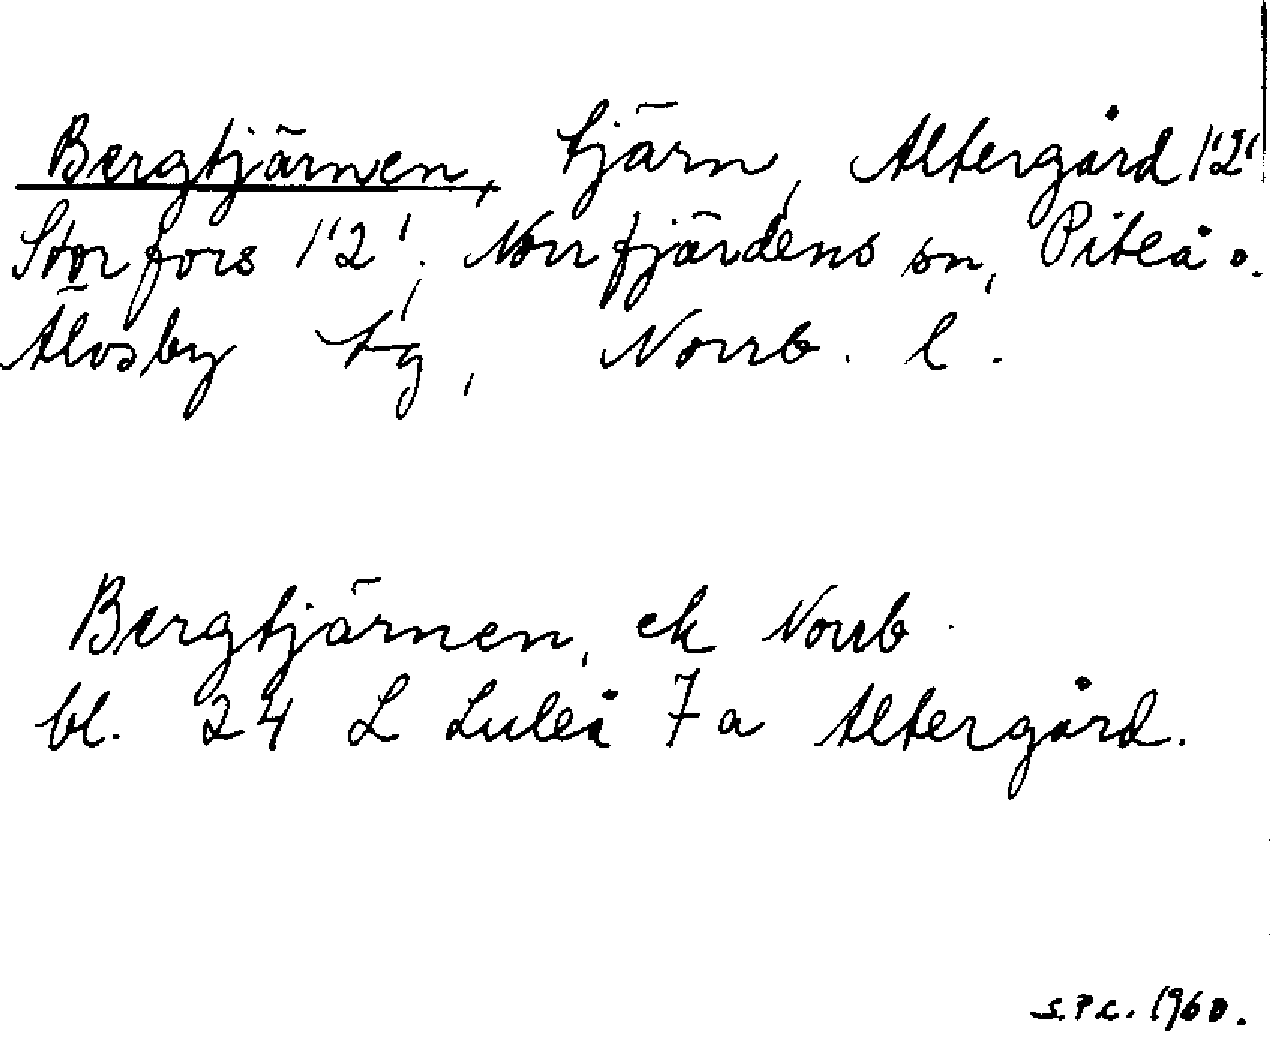 Bergtjärnen, tjärn, Altergård 1'2'
Storfors 1'2'. Norrfjärdens sn, Piteå o.
Älvsby tg, Norrb. l.
Bergtjärnen, ek Norrb.
bl. 24 L Luleå 7a Altergård.
S.P.C. 1960.